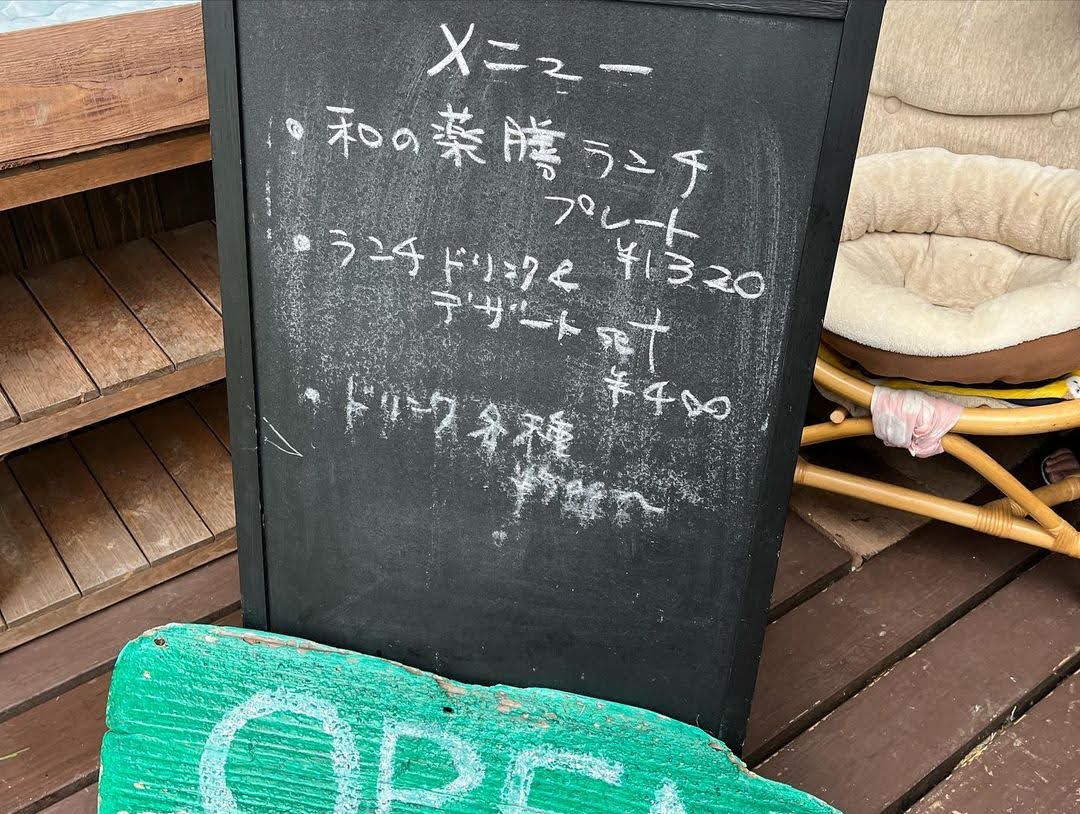 メニュー
・和の薬膳ランチ
プレート
¥1320
・ランチドリンク&
デザート 付
¥400
・ドリンク各種
OPEN